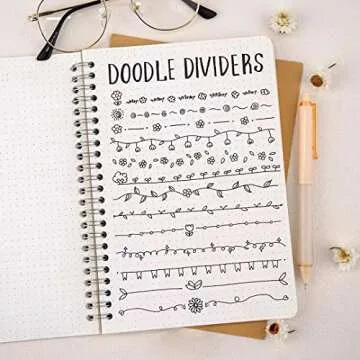 DOODLE DIVIDERS